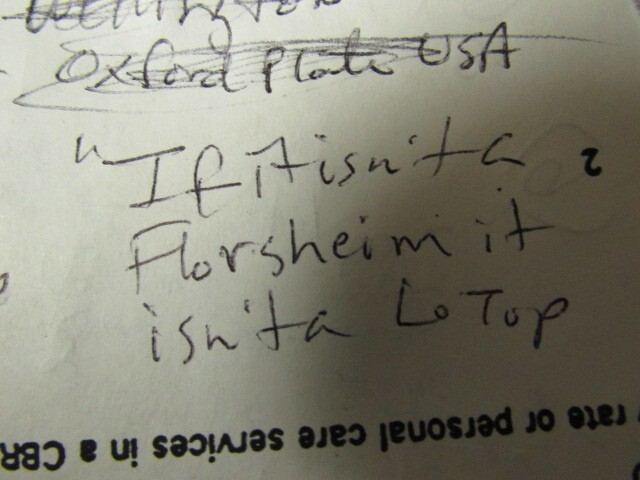 Wellington
Oxford Plate USA
"If it isn't a
Florsheim it
isn't a Lo Top
rate or personal care services in a CBR